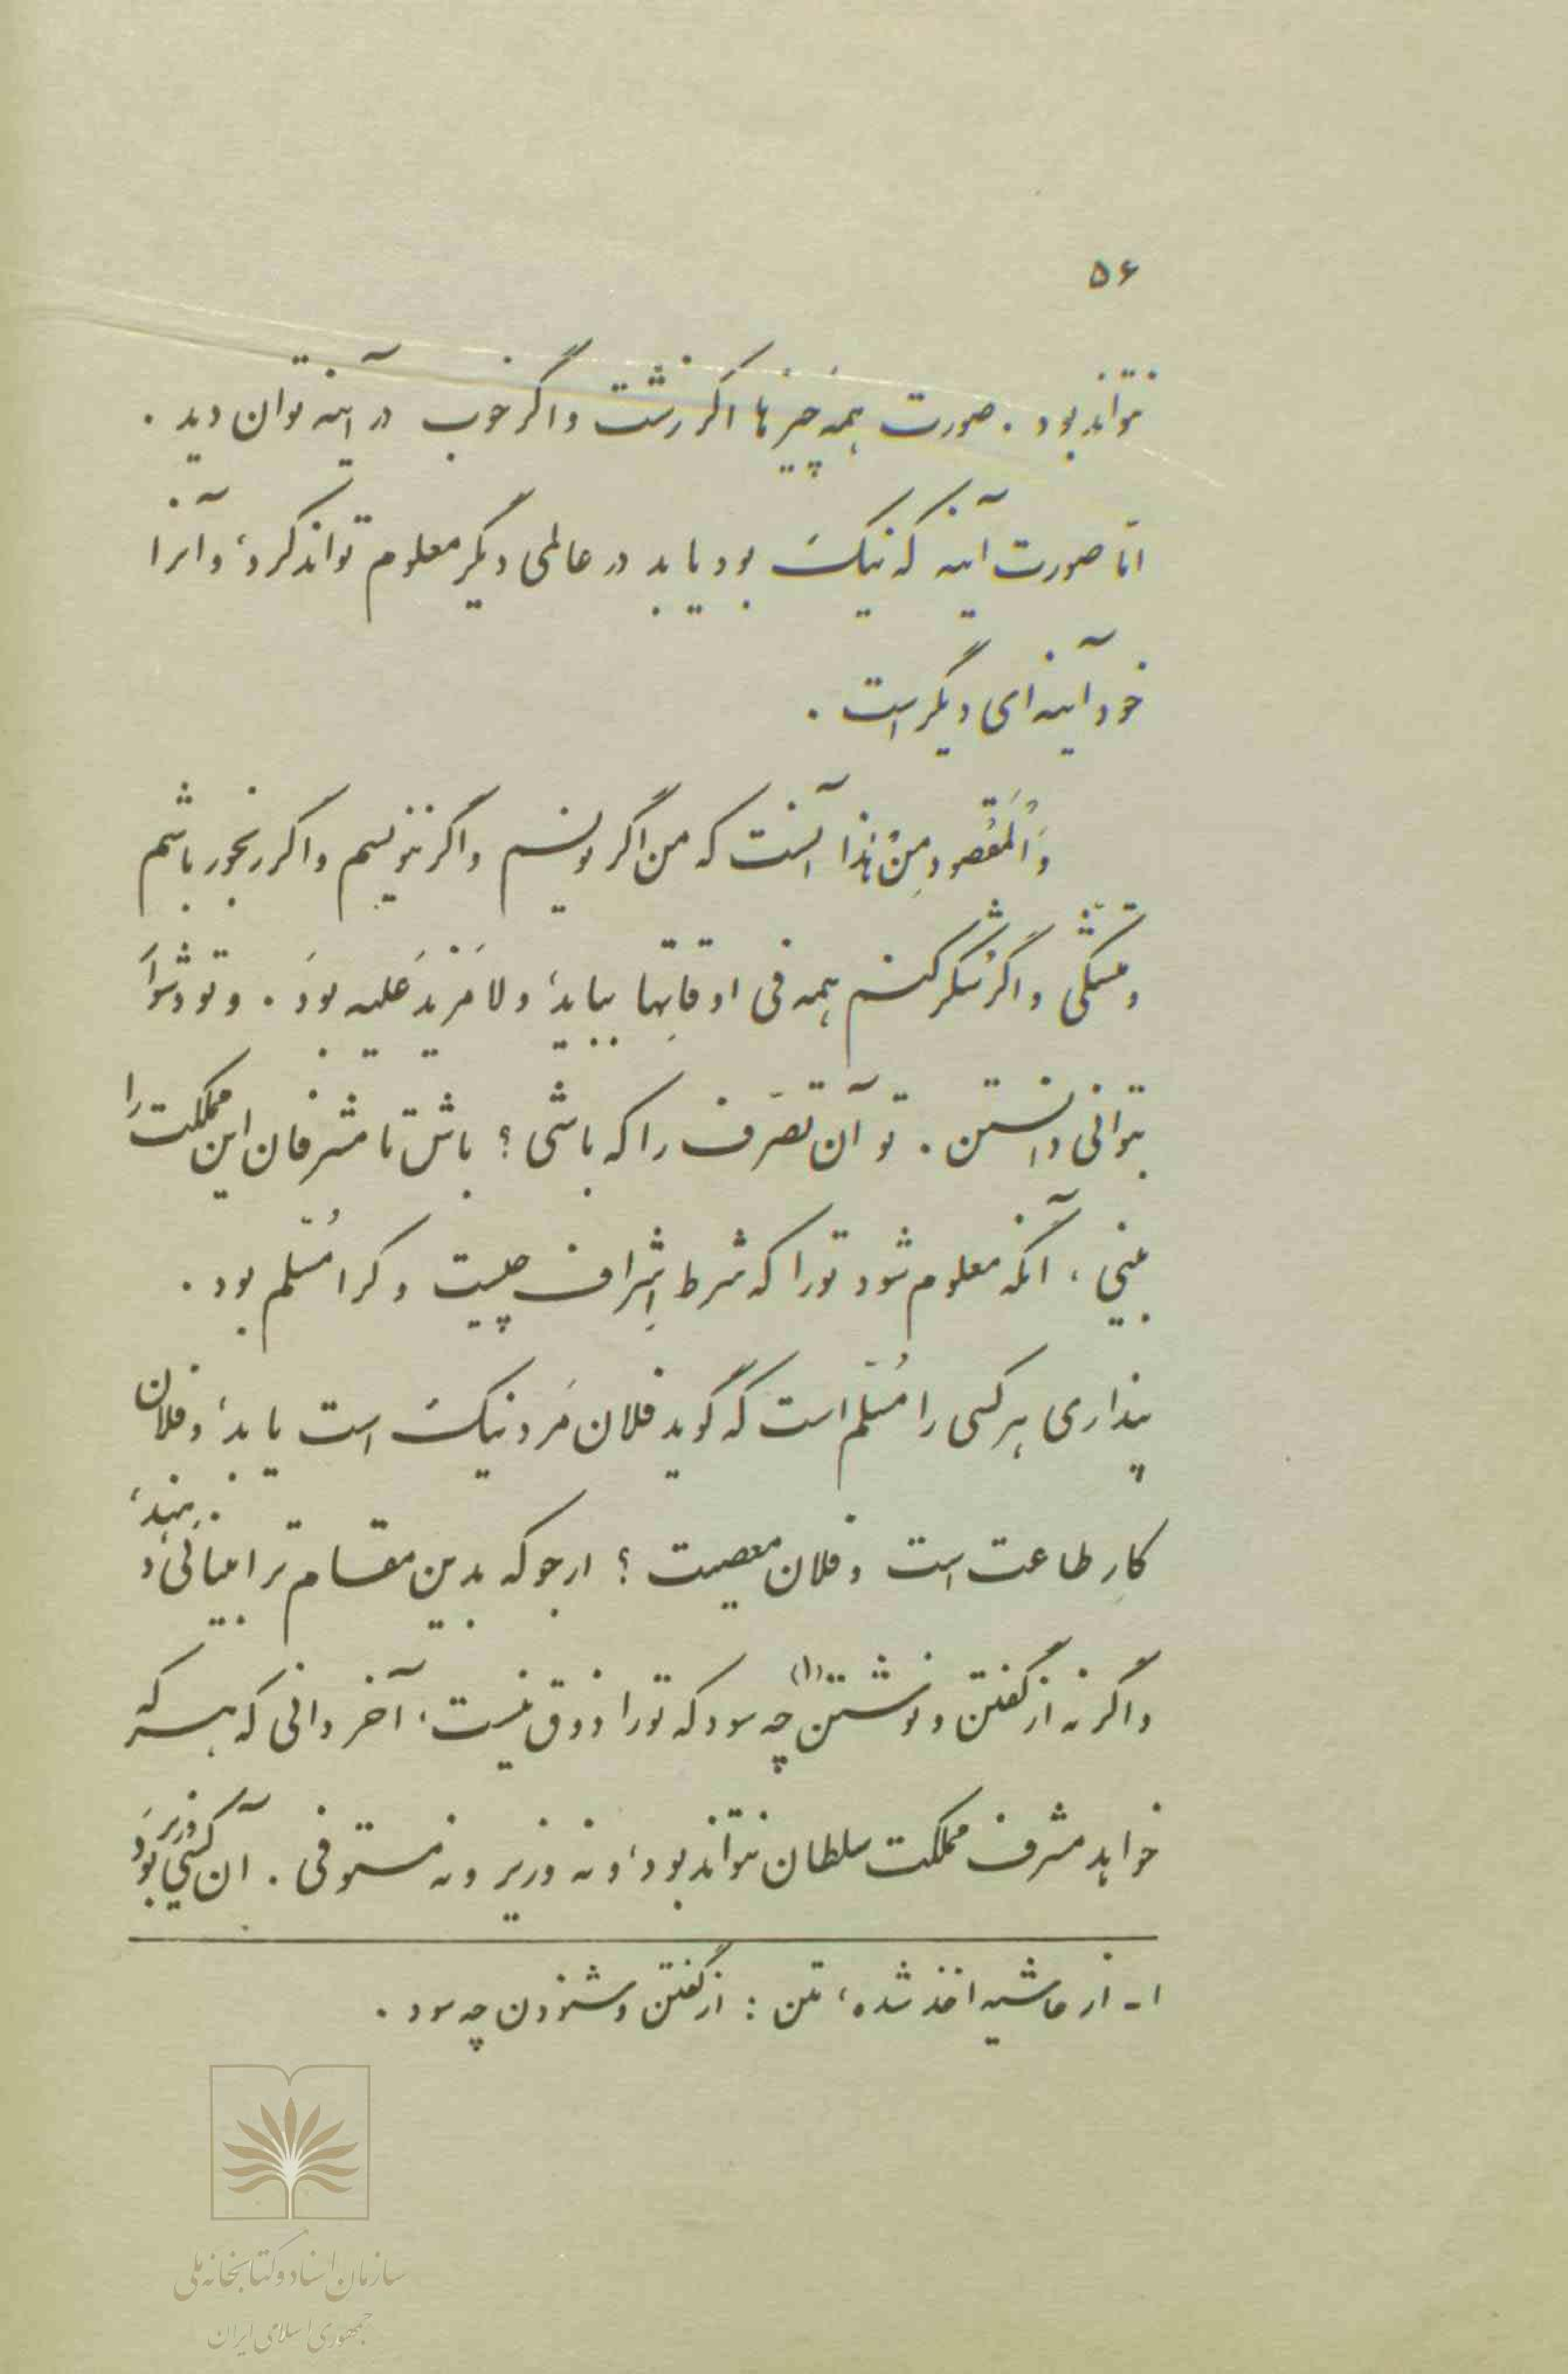 ۵۶
نتواند بود . صورت همه چیزها اگر زشت و اگر خوب در آینه توان دید .
امّا صورت آینه که نیک بود یا بد در عالمی دیگر معلوم تواند کرد، و آنرا
خود آینه‌ای دیگر است .
وَالْمَقْصود مِنْ هٰذا آنست که من اگر نویسم و اگر ننویسم و اگر رنجور باشم
و مشتکی و اگر شکر کنم همه فی اوقاتِها بباید، ولا مَزیدَ عَلیه بوَد . و تو دشوا
بتوانی دانستن . تو آن تصرّف را که باشی ؟ باش تا مشرفان این مملکت را
ببینی ، آنگه معلوم شود تورا که شرط اِشراف چیست و کرا مُسّلم بود .
پنداری هر کسی را مُسّلم است که گوید فلان مَرد نیک است یا بد، و فلان
کارِ طاعت است و فلان معصیت ؟ ارجو که بدین مقام ترا بینائی‌ دهند،
و اگر نه از گفتن و نوشتن (۱) چه سود که تورا ذوق نیست، آخر دانی که هر که
خواهد مشرف مملکت سلطان نتواند بود، و نه وزیر و نه مستوفی . آن کسی بوَد وزیر
۱ـ از حاشیه اخذ شده، متن : از گفتن و شنودن چه سود .
سازمان اسناد و کتابخانه ملی
جمهوری اسلامی ایران